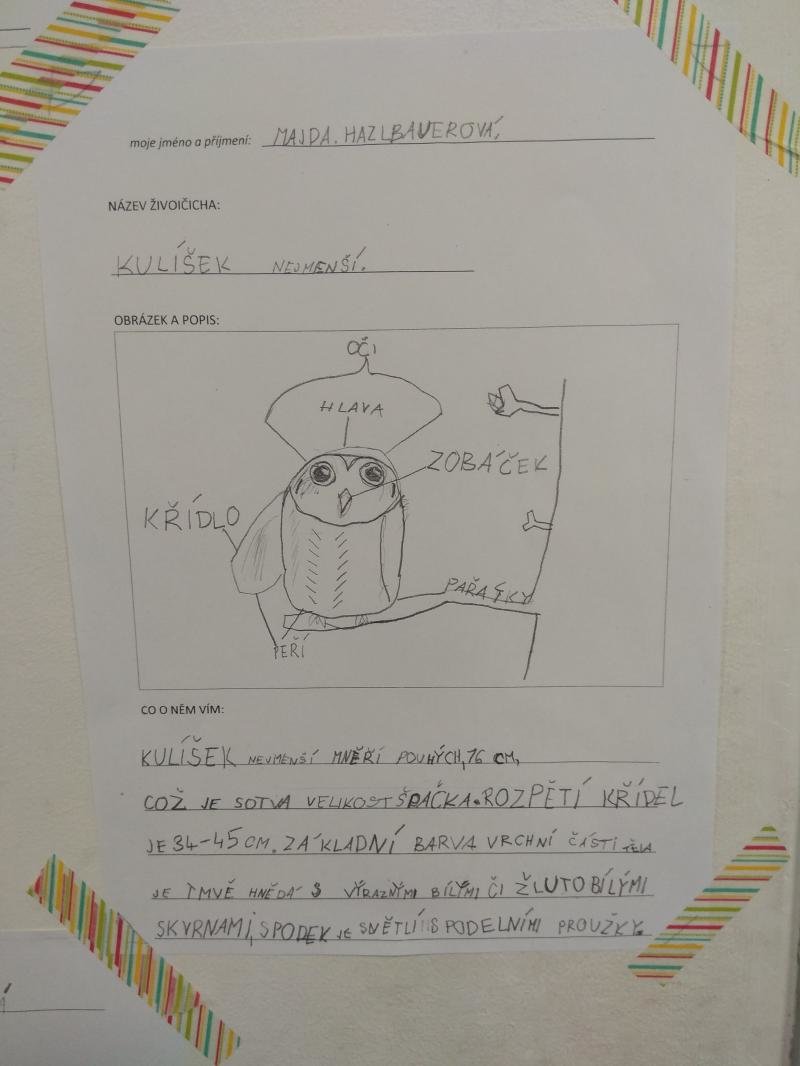 moje jméno a příjmení: MAJDA. HAZLBAUEROVÁ,
NÁZEV ŽIVOIČICHA:
KULÍŠEK NEJMENŠÍ.
OBRÁZEK A POPIS:
OČI
HLAVA
ZOBÁČEK
KŘÍDLO
PAŘÁTKY
PEŘÍ
CO O NĚM VÍM:
KULÍŠEK NEJMENŠÍ MNĚŘÍ POUHÝCH, 16 CM,
COŽ JE SOTVA VELIKOST ŠPAČKA. ROZPĚTÍ KŘÍDEL
JE 34-45 CM. ZÁKLADNÍ BARVA VRCHNÍ ČÁSTI TĚLA
JE TMVĚ HNĚDÁ S VÝRAZNÝMI BÍLÝMI ČI ŽLUTOBÍLÝMI
SKVRNAMI, SPODEK JE SNĚTLÍ S PODELNÍMI PROUŽKY.